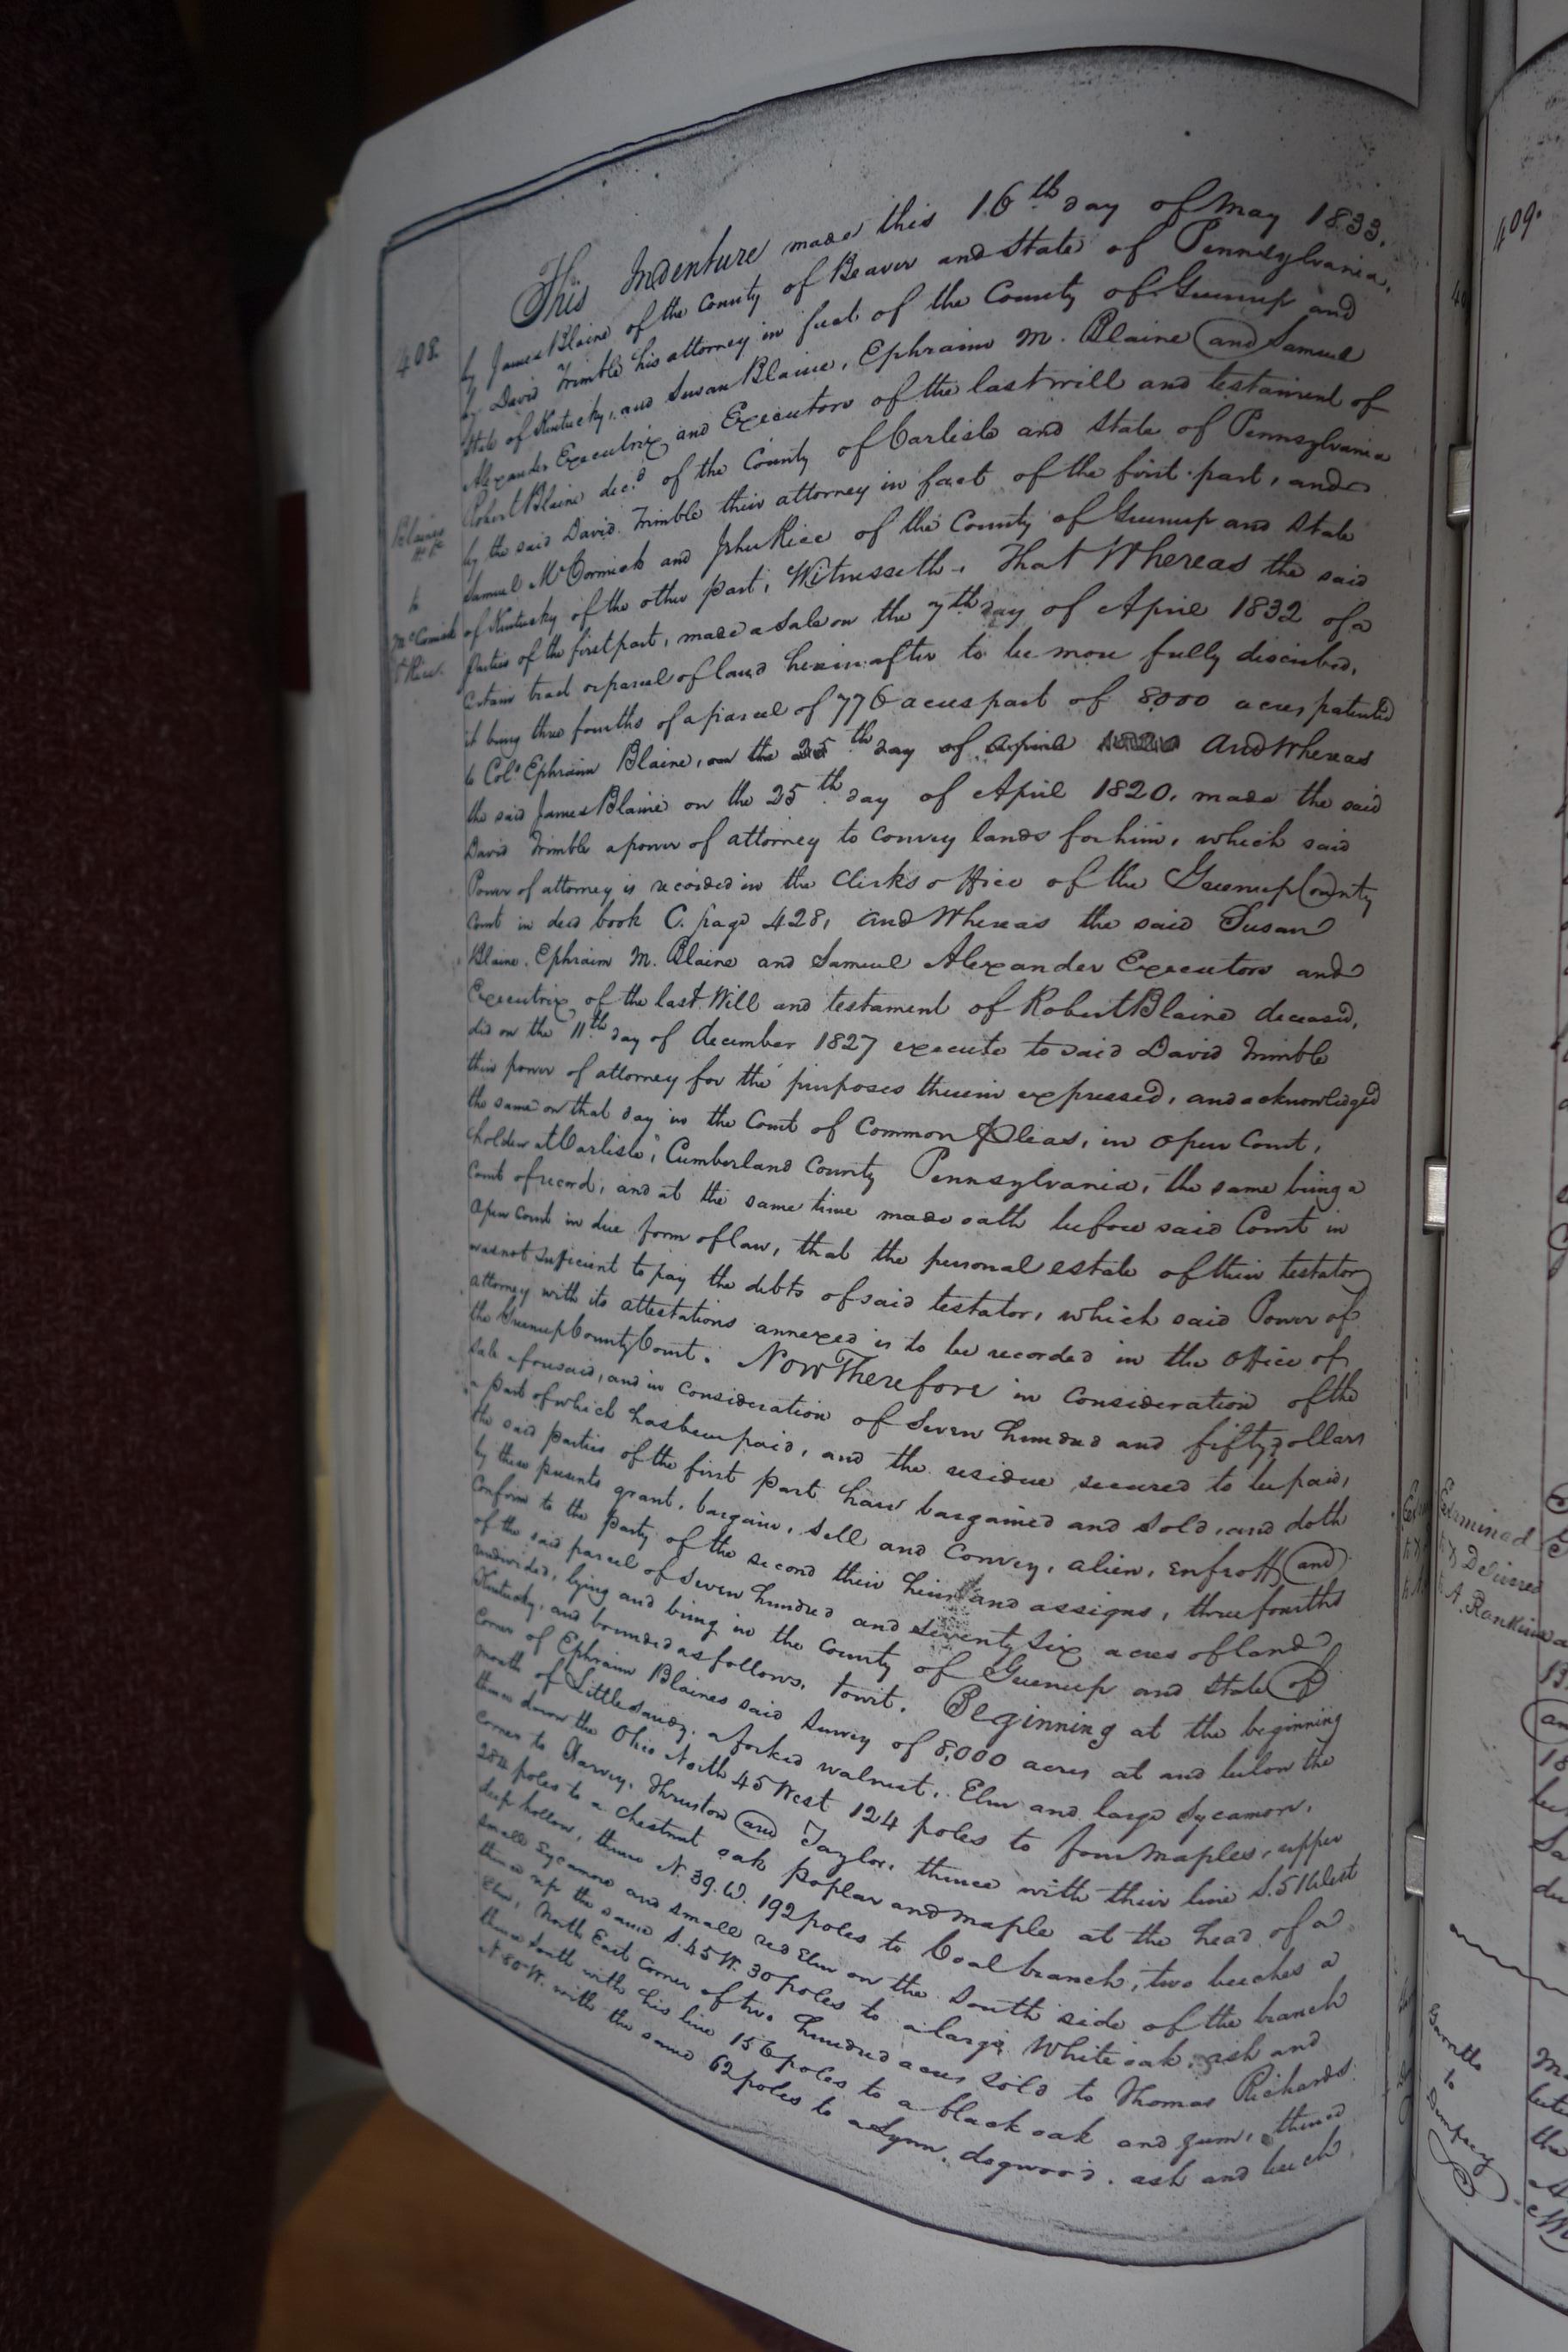 408.
This Indenture made this 16th day of May 1833.
by James Blaine of the County of Beaver and State of Pennsylvania,
by David Trimble his attorney in fact of the County of Greenup and
State of Kentucky, and Susan Blaine, Ephraim M. Blaine and Samuel
Alexander Executrix and Executors of the last will and testament of
Robert Blaine dec.d of the County of Carlisle and State of Pennsylvania
by the said David Trimble their attorney in fact of the first part, and
Samuel McCormick and John Rice of the County of Greenup and State
of Kentucky of the other part, Witnesseth, That Whereas the said
parties of the first part, made a sale on the 7th day of April 1832 of a
Certain tract or parcel of land hereinafter to be more fully discribed,
it being three fourths of a parcel of 776 acres part of 8000 acres patented
to Colo Ephraim Blaine, on the 25th day of April 1820 And Whereas
the said James Blaine on the 25th day of April 1820, made the said
David Trimble a power of attorney to convey lands for him, which said
Power of attorney is recorded in the Clerks office of the Greenup County
Court in deed book C. page 428, and Whereas the said Susan
Blaine, Ephraim M. Blaine and Samuel Alexander Executors and
Executrix of the last Will and testament of Robert Blaine deceased,
did on the 11th day of december 1827 execute to said David Trimble
their power of attorney for the purposes therein expressed, and acknowledged
the same on that day in the Court of Common Pleas, in open Court,
holden at Carlisle, Cumberland County Pennsylvania, the same being a
Court of record, and at the same time made oath before said Court in
open Court in due form of law, that the personal estate of their testator
was not suficient to pay the debts of said testator, which said Power of
attorney with its attestations annexed is to be recorded in the office of
the Greenup County Court. Now Therefore in consideration of the
sale aforesaid, and in consideration of Seven hundred and fifty dollars
a part of which has been paid, and the residue secured to be paid,
the said parties of the first part have bargained and sold, and doth
by these presents grant, bargain, sell and convey, alien, enfeoff and
Confirm to the party of the second their heirs and assigns, three fourths
of the said parcel of seven hundred and seventy six acres of land
undivided, lying and being in the County of Greenup and State of
Kentucky, and bounded as follows, towit. Beginning at the beginning
Corner of Ephraim Blaines said Survey of 8,000 acres at and below the
mouth of Little Sandy, a forked walnut, Elm and large Sycamore,
thence down the Ohio North 45 West 124 poles to four maples, upper
corner to Harvey, Thruston and Taylor, thence with their line S. 51 West
284 poles to a chestnut oak poplar and maple at the head of a
deep hollow, thence N. 39. W. 192 poles to Coal branch, two beeches a
small Sycamore and small red Elm on the South side of the branch
thence up the same S. 45 W. 30 poles to a large White oak, ash and
Elm, North East Corner of two hundred acres sold to Thomas Richards
thence South with his line 156 poles to a black oak and gum, thence
N 80 W. with the same 62 poles to a Lynn, dogwood, ash and beech
Blaines
to
McCormick
& Rice.
409.
Examined
& Delivered
A. Rankins
to